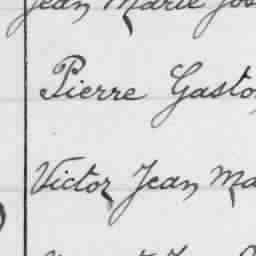 Jean Marie Jos
Pierre Gasto
Victor Jean Ma